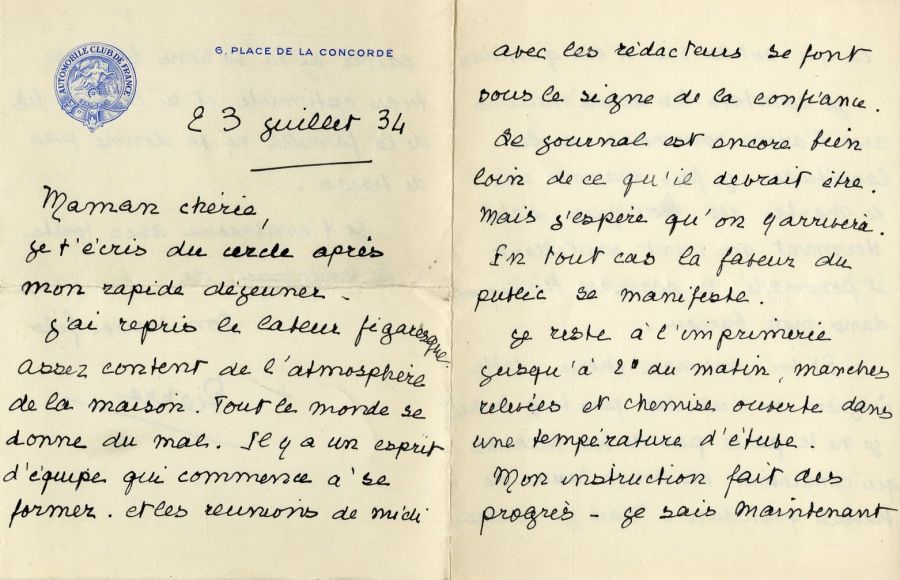 AUTOMOBILE CLUB DE FRANCE
6, PLACE DE LA CONCORDE
3 juillet 34
Maman chérie,
je t'écris du cercle après
mon rapide déjeuner -
j'ai repris le labeur figaresque
assez content de l'atmosphère
de la maison Tout le monde se
donne du mal. Il y a un esprit
d'équipe qui commence à se
former. et les réunions de midi
avec les rédacteurs se font
sous le signe de la confiance.
Le journal est encore bien
loin de ce qu'il devrait être.
Mais j'espère qu'on y arrivera.
En tout cas la faveur du
public se manifeste.
je reste à l'imprimerie
jusqu'à 2h du matin, manches
relevées et chemise ouverte dans
une température d'étuve.
Mon instruction fait des
progrès - je sais maintenant